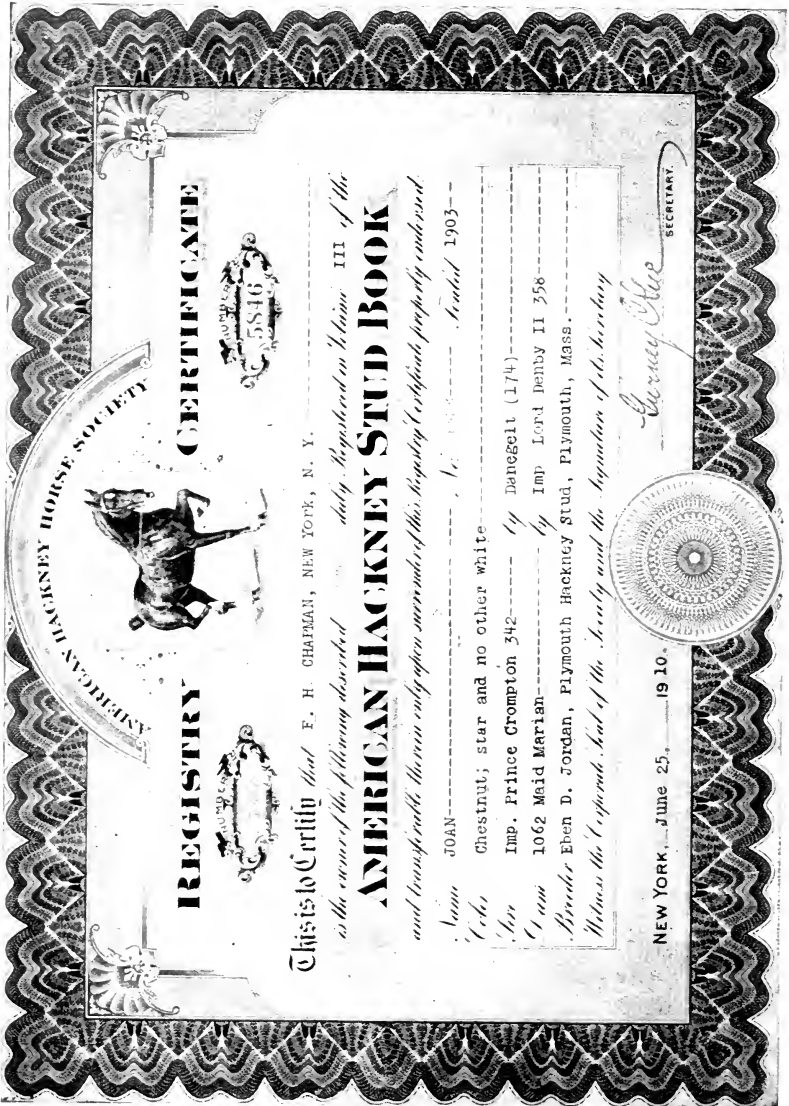 AMERICAN HACKNEY HORSE SOCIETY
REGISTRY CERTIFICATE
NUMBER
NUMBER
5846
This is to Certify that E. H. CHAPMAN, NEW YORK, N. Y.
is the owner of the following described duly Registered in Volume III of the
AMERICAN HACKNEY STUD BOOK
and transferable therein only upon surrender of this Registry Certificate properly endorsed.
Name JOAN---------- Foaled 1903--
Color Chestnut; star and no other white
Sire Imp. Prince Crompton 342----- by Danegelt (174)
Dam 1062 Maid Marian---------- by Imp Lord Denby II 358
Breeder Eben D. Jordan, Plymouth Hackney Stud, Plymouth, Mass.
Witness the Corporate Seal of the Society and the Signature of its Secretary
NEW YORK, June 25, 1910.
Gurney C. Gue
SECRETARY.